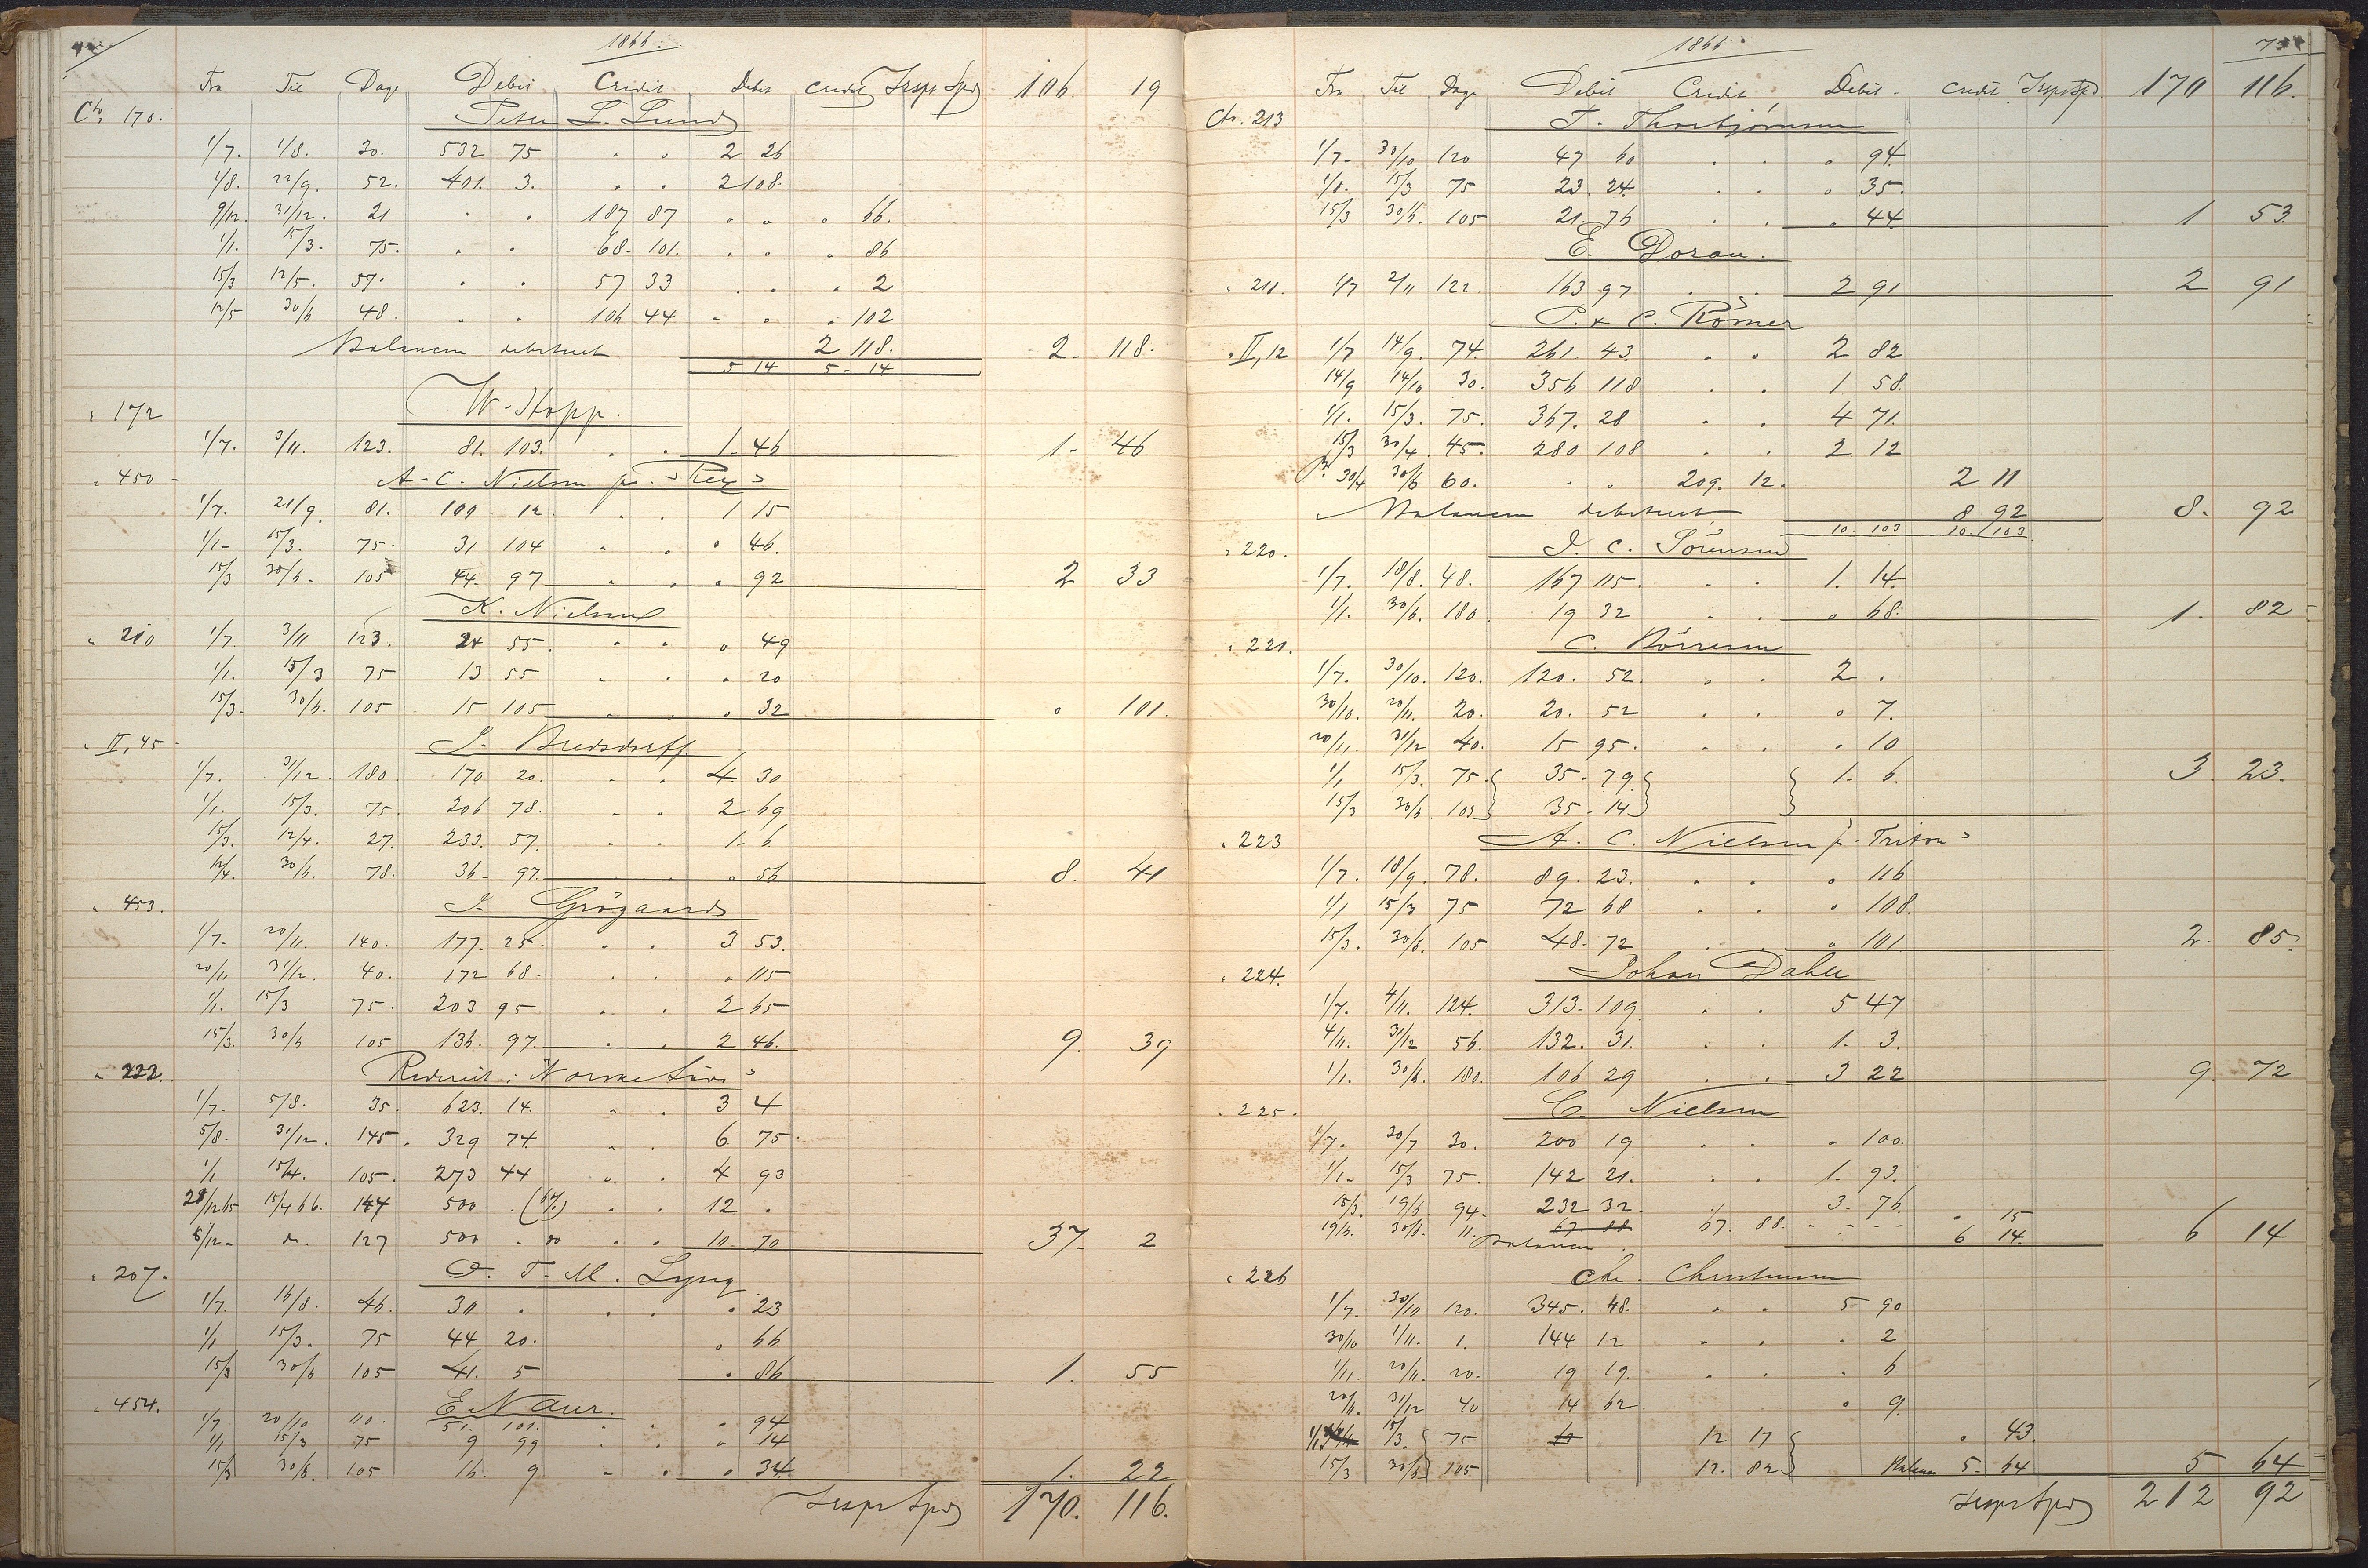 1866.
Fra Til Dage Debit Credit Debit Credit Trspt Spd 106. 19
Cto 170. Peter L. Lund
1/7. 1/8. 30. 532 75 . . 2 26
1/8. 22/9. 52. 401. 3. . . 2 108.
9/12. 31/12. 21 . . 187 87 . . . 66.
1/1. 15/3. 75. . . 68. 101. . . . 86
15/3 12/5. 57. . . 57 33 . . . 2
12/5 30/6 48. . . 106 44 . . . 102
Balancen debiteret 2 118. 2. 118.
5 14 5. 14
" 172 W. Hopp.
1/7. 3/11. 123. 81. 103. . . 1. 46 1. 46
" 450 A. C. Nielsen pr. "Rex"
1/7. 21/9. 81. 100 12 . . 1 15
1/1. 15/3. 75. 31 104 . . . 46.
15/3 30/6. 105 44. 97 . . . 92 2 33
K. Nielsen
" 210 1/7. 3/11 123. 24 55. . . . 49
1/1. 15/3 75 13 55 . . . 20
15/3. 30/6. 105 15 105 . . . 32 . 101.
" II, 45 J. Bredsdorff.
1/7. 31/12. 180. 170 20. . . 4. 30
1/1. 15/3. 75. 206 78. . . 2 69
15/3. 12/4. 27. 233. 57. . . 1. 6
12/4. 30/6. 78. 36. 97. . . . 56 8. 41
" 453. J. Grögaard
1/7. 20/11. 140. 177. 25. . . 3 53.
20/11 31/12. 40. 172 68. . . . 115
1/1. 15/3 75. 203 95 . . 2 65
15/3. 30/6 105 136. 97. . . 2 46. 9. 39
" 222. Rederiet i "Norske Løve"
1/7. 5/8. 35. 623. 14. . . 3 4
5/8. 31/12. 145. 329 74 . . 6 75.
1/1 15/4. 105. 273 44 . . 4 93
28/12 65 15/4 66. 147 500 . (6%) . . 12 .
8/12. do. 127 500 . do . . 10. 70 37. 2
" 207. O. T. M. Lyng
1/7. 16/8. 46. 30 . . . . 23
1/1 15/3. 75 44 20. . 66.
15/3 30/6 105 41. 5 . 86 1. 55
" 454. E. Naur.
1/7 20/10 110. 51. 101. . . . 94
1/1 15/3 75 9 99 . . . 14
15/3 30/6. 105 16. 9 . . . 34. 1. 22
Trspt Spd 170. 116.
1866.
Fra Til Dage Debit Credit Debit. Credit Trspt Spd. 170 116.
Cto. 213 T. Thorbjörnsen
1/7. 30/10 120 47 60 . . . 94.
1/1. 15/3 75 23. 24. . . . 35.
15/3 30/6. 105 21. 76 . . . 44. 1 53
E. Dorau.
" 211. 1/7 2/11 122 163 97 . . 2 91 2 91
P. & C. Römer
" II, 12 1/7 14/9. 74. 261 43. . . 2 82
14/9 14/10 30. 356 118 . . 1 58.
1/1. 15/3. 75. 367. 28 . . 4 71.
15/3 30/4. 45. 280 108 . . 2 12
30/4 30/6 60. . . 209. 12. 2 11
Balancen debiteret 8 92 8. 92
10. 103 10. 103
" 220. J. C. Sörensen
1/7. 18/8. 48. 167 115. . . 1. 14.
1/1. 30/6. 180. 19 32 . . . 68. 1. 82
" 221. C. Börresen
1/7. 30/10. 120. 120. 52. . . 2 .
30/10. 20/11. 20. 20. 52 . . . 7.
20/11. 31/12 40. 15 95. . . . 10
1/1 15/3. 75. 35. 79 1. 6. 3. 23.
15/3 30/6 105 35. 14
" 223 A. C. Nielsen pr. "Triton"
1/7. 18/9. 78. 89. 23. . . . 116
1/1 15/3 75 72 68 . . . 108.
15/3. 30/6. 105 48. 72 . 101 2. 85.
" 224. Johan Dahl
1/7. 4/11. 124. 313. 109 . . 5 47
4/11. 31/12 56. 132. 31. . . 1. 3.
1/1. 30/6. 180. 106 29 . . 3 22 9. 72
" 225. C. Nielsen
1/7. 30/7 30. 200 19 . . . 100.
1/1. 15/3 75. 142 21. . . 1. 93.
15/3. 19/6. 94. 232 32. 3. 76.
19/6. 30/6. 11. 67 88 67. 88. . 15
Balancen 6 14. 6 14
" 226 Chr. Christensen
1/7. 30/10 120. 345. 48. . . 5 90
30/10 1/11. 1. 144 12 . . . 2
1/11. 20/11. 20. 19 19. . . . 6
20/11. 31/12 40 14 62. . 9.
1/1 15/3. 75 12 17 . 43.
15/3 30/6 105 12. 82 Balance 5. 64 5 64
Trspt Spd 212 92